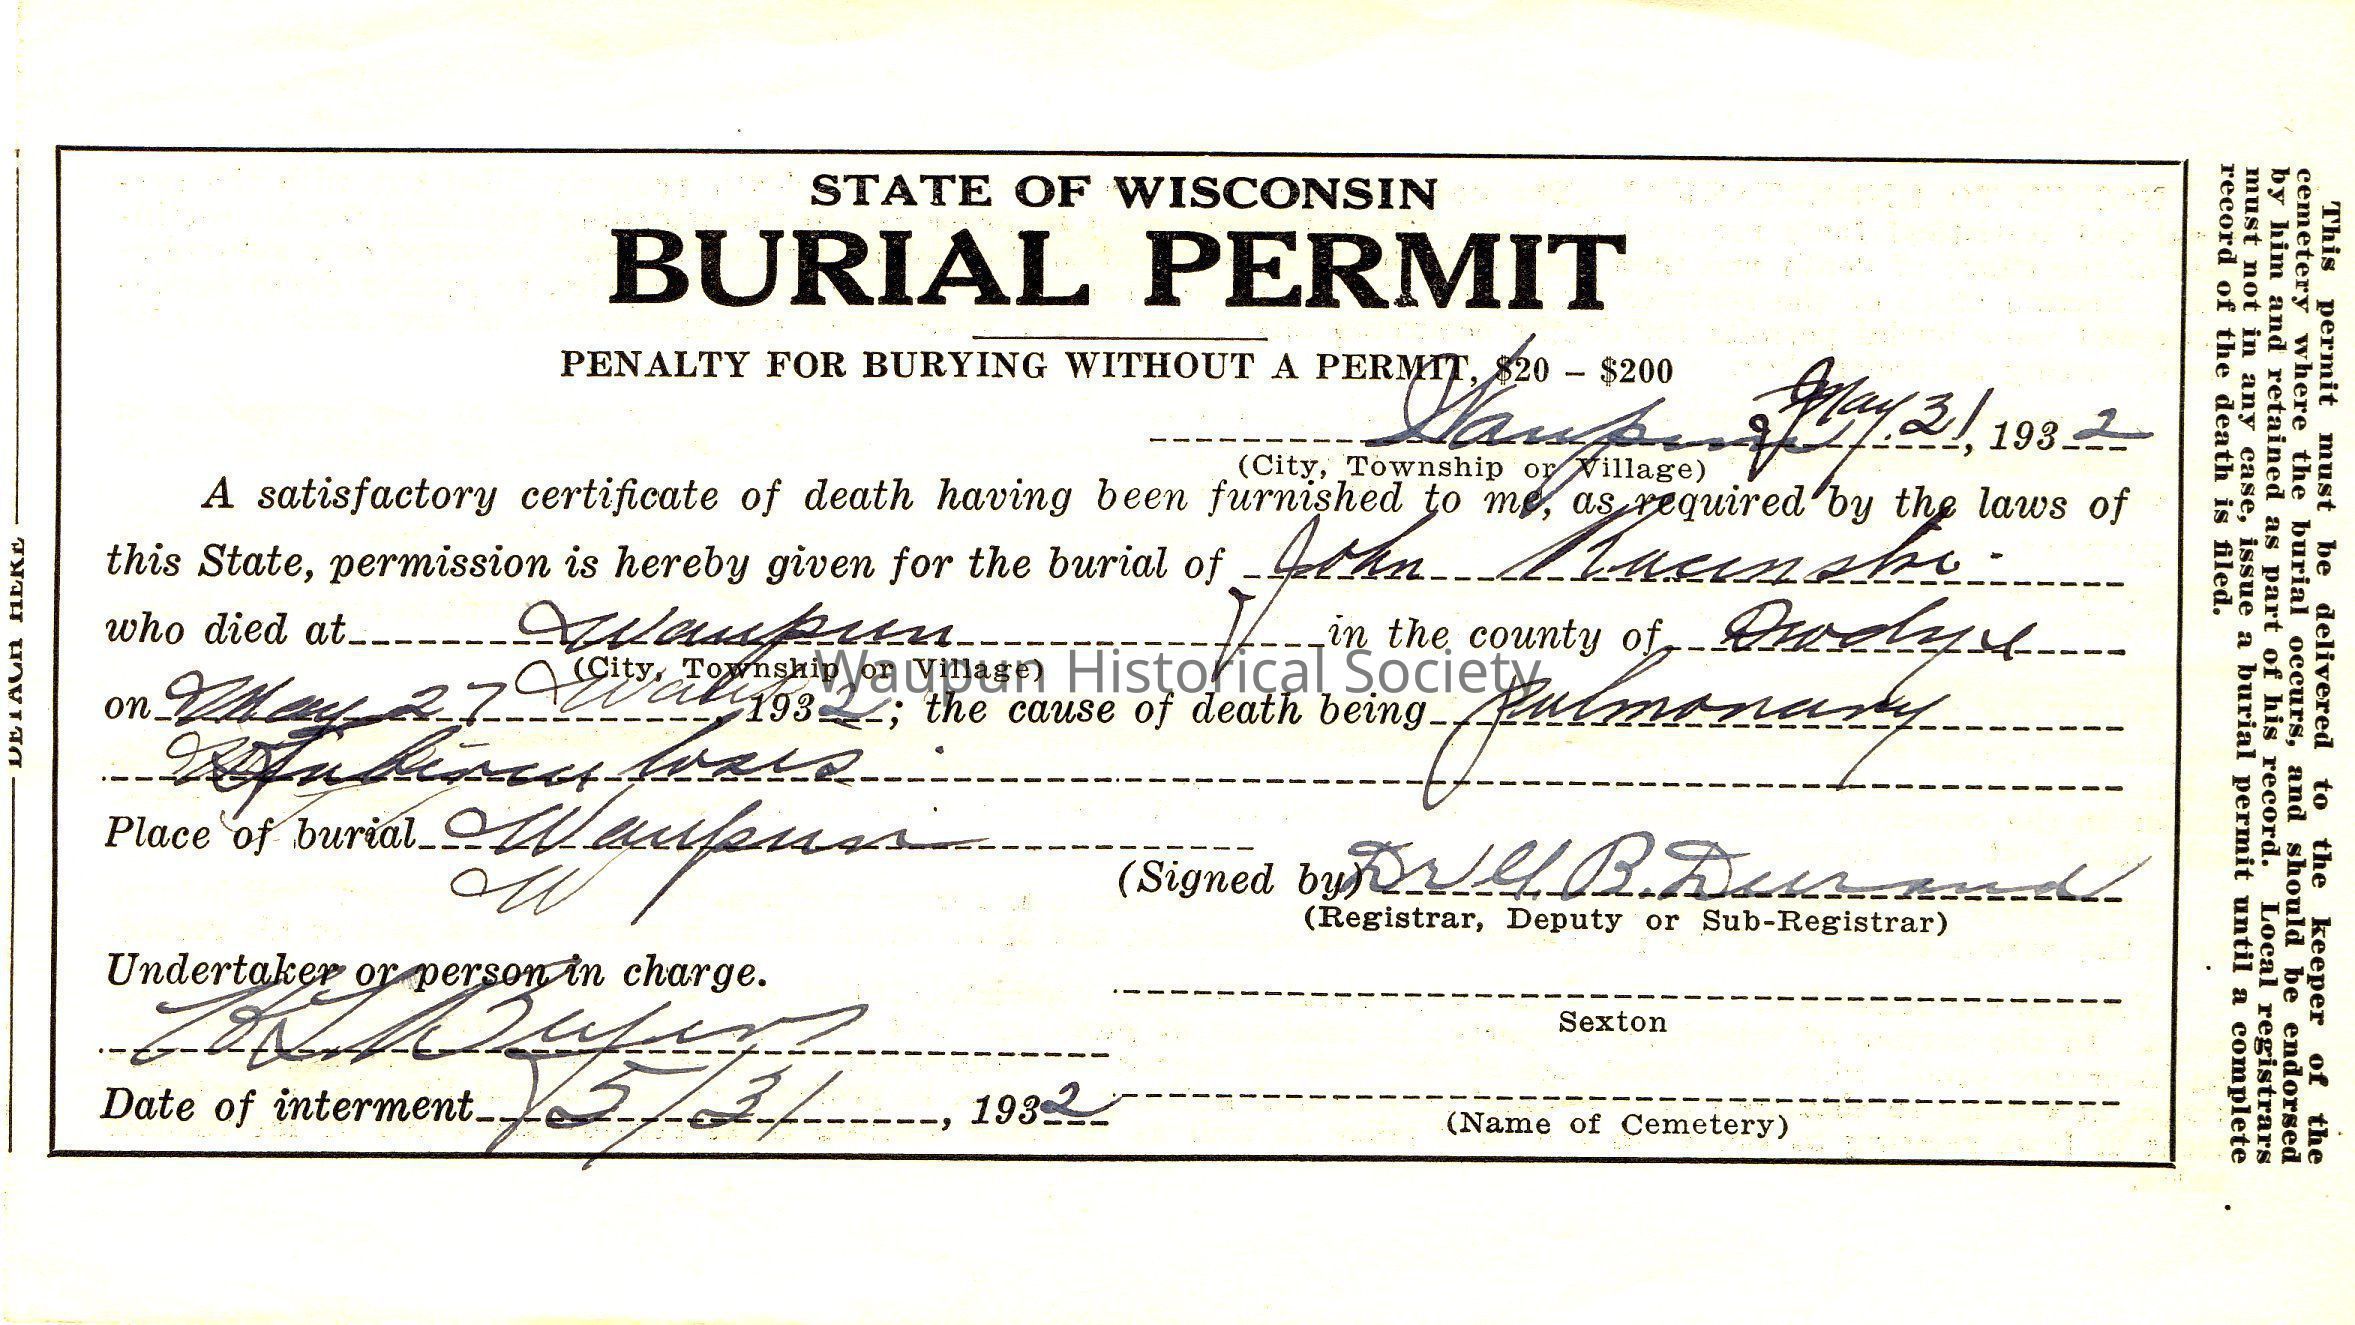 STATE OF WISCONSIN
BURIAL PERMIT
PENALTY FOR BURYING WITHOUT A PERMIT, $20 – $200
Waupun May 31, 1932
(City, Township or Village)
A satisfactory certificate of death having been furnished to me, as required by the laws of
this State, permission is hereby given for the burial of John
who died at Waupun in the county of Dodge
(City, Township or Village)
on May 27 1932; the cause of death being Pulmonary
Place of burial Waupun
W
(Signed by) Dr B. Durand
(Registrar, Deputy or Sub-Registrar)
Undertaker or person in charge.
Sexton
Date of interment 5/31, 1932
(Name of Cemetery)
DETACH HERE
This permit must be delivered to the keeper of the
cemetery where the burial occurs, and should be endorsed
by him and retained as part of his record. Local registrars
must not in any case, issue a burial permit until a complete
record of the death is filed.
Waupun Historical Society